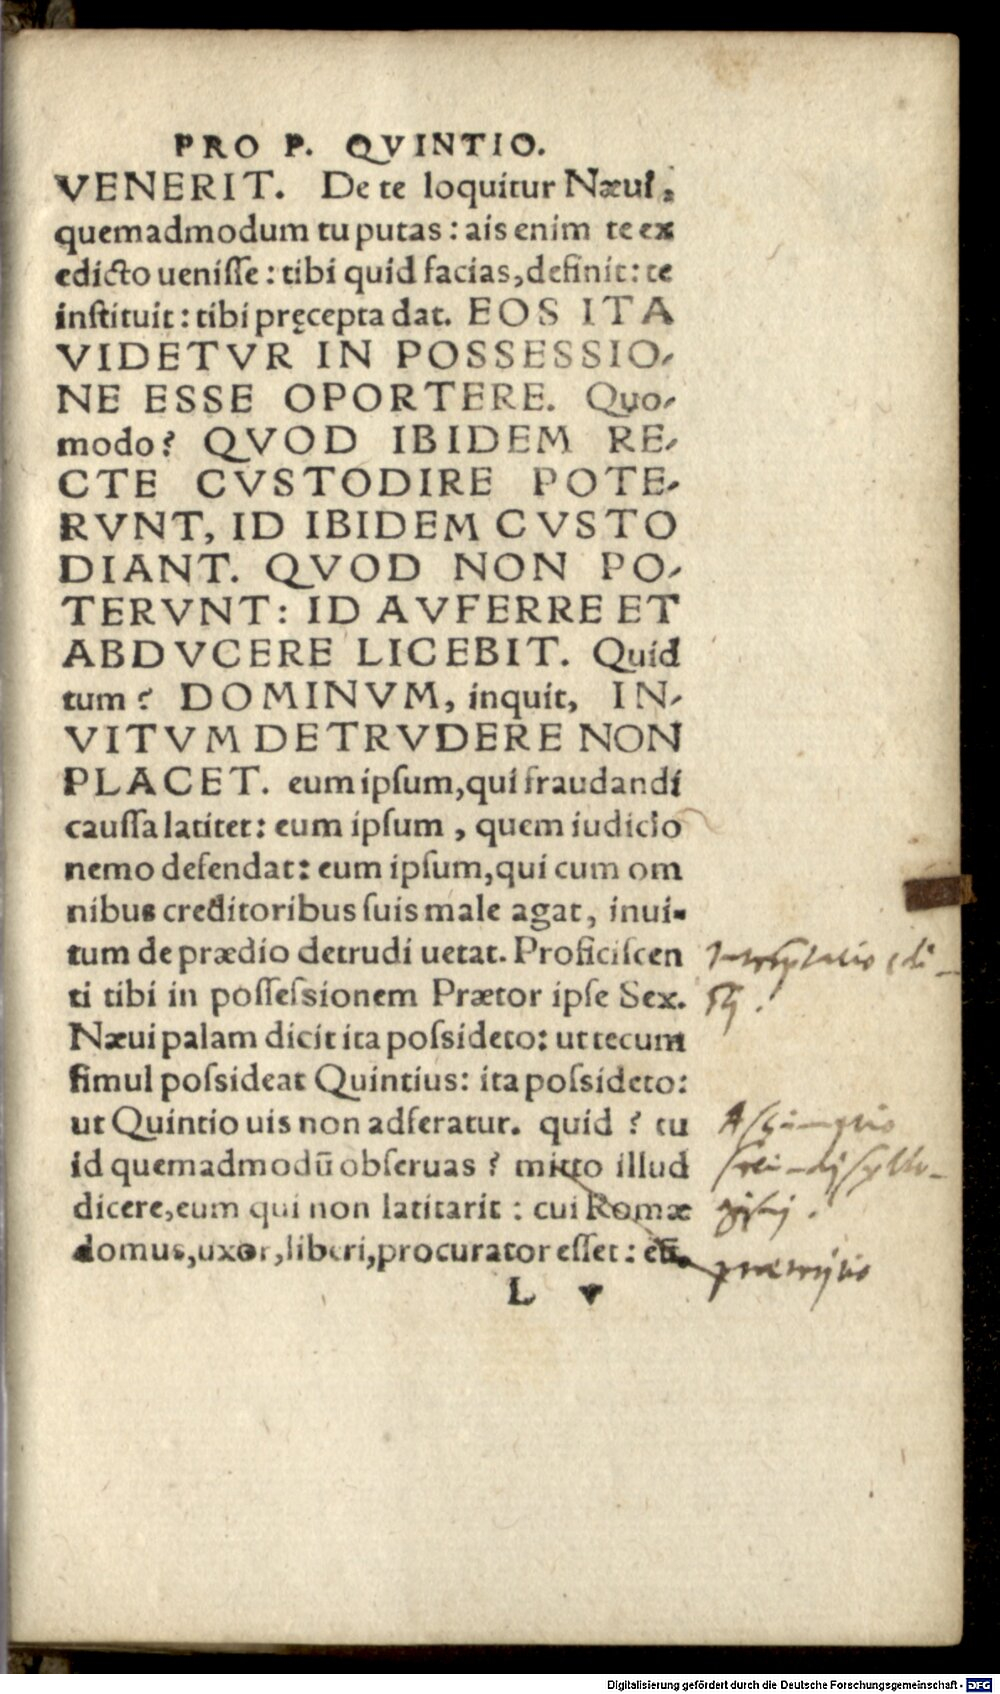 PRO P. QVINTIO.
VENERIT. De te loquitur Næui,
quemadmodum tu putas: ais enim te ex
edicto uenisse: tibi quid facias, definit: te
instituit: tibi pręcepta dat. EOS ITA
VIDETVR IN POSSESSIO-
NE ESSE OPORTERE. Quo-
modo? QVOD IBIDEM RE-
CTE CVSTODIRE POTE-
RVNT, ID IBIDEM CVSTO
DIANT. QVOD NON PO-
TERVNT: ID AVFERRE ET
ABDVCERE LICEBIT. Quid
tum? DOMINVM, inquit, IN-
VITVM DETRVDERE NON
PLACET. eum ipsum, qui fraudandi
caussa latitet: eum ipsum, quem iudicio
nemo defendat: eum ipsum, qui cum om
nibus creditoribus suis male agat, inui-
tum de prædio detrudi uetat. Proficiscen
ti tibi in possessionem Prætor ipse Sex.
Næui palam dicit ita possideto: ut tecum
simul possideat Quintius: ita possideto:
ut Quintio uis non adferatur. quid? tu
id quemadmodū obseruas? mitto illud
dicere, eum qui non latitarit: cui Romæ
domus, uxor, liberi, procurator esset: etiā
L v
Interpretatio edi-
cti.
Assumptio
syllo-
gismi.
præteritio
Digitalisierung gefördert durch die Deutsche Forschungsgemeinschaft - DFG